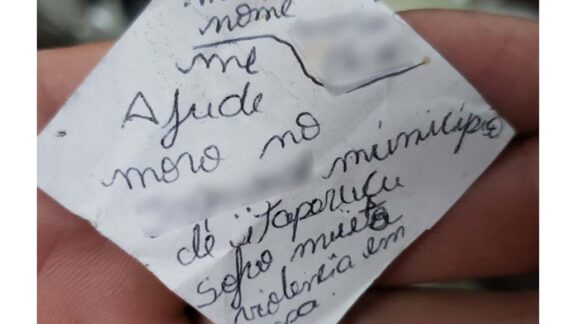 nome
me
Ajude
moro no
município
de itaperuçu
sofro muita
violencia em